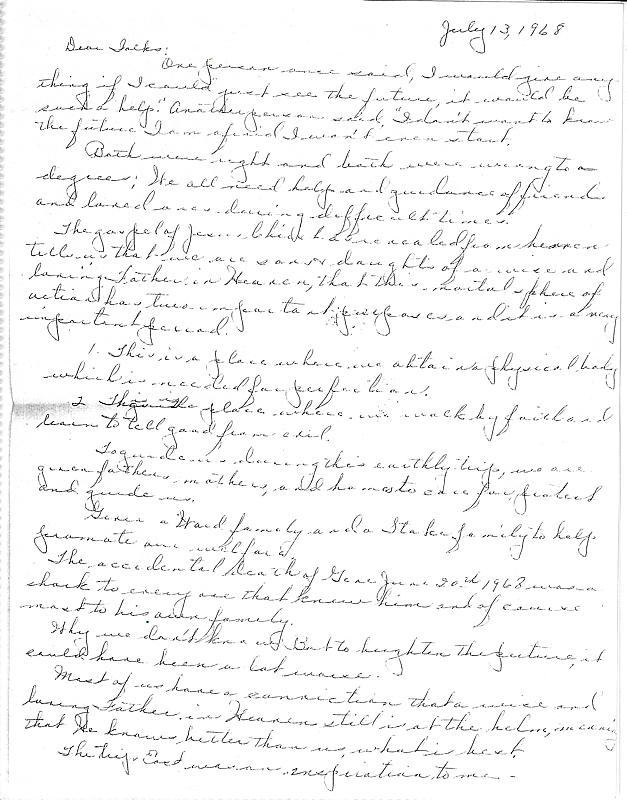 July 13, 1968
Dear Folks:
One person once said, I would give any
thing if I could "just see the future, it would be
such a help." Another person said, "I don't want to know
the future I am afraid I won't even start.
Both were right and both were wrong to a
degree; We all need help and guidance of friends
and loved ones during difficult times.
The gospel of Jesus Christ has revealed from heaven
tells us that we are sons & daughts of a wise and
loving Father in Heaven, that this mortal sphere of
action has two important purposes and it is a very
important period.
1. This is a place where we obtain a physical body
which is needed for perfection.
2. This is the place where we walk by faith and
learn to tell good from evil.
To guide us during this earthly trip, we are
given fathers, mothers, and homes to care for, protect
and guide us.
Given a Ward family and a Stake family to help
promote our welfare.
The accidental death of Gene June 20th 1968 was a
shock to everyone that knew him and of course
most to his own family.
Why we don't know. But to heighten the future, it
could have been a lot worse.
Most of us have a conviction that a wise and
loving Father in Heaven still is at the helm, meaning
that He knows better than us, what is best.
The trip East was an inspiration to me -